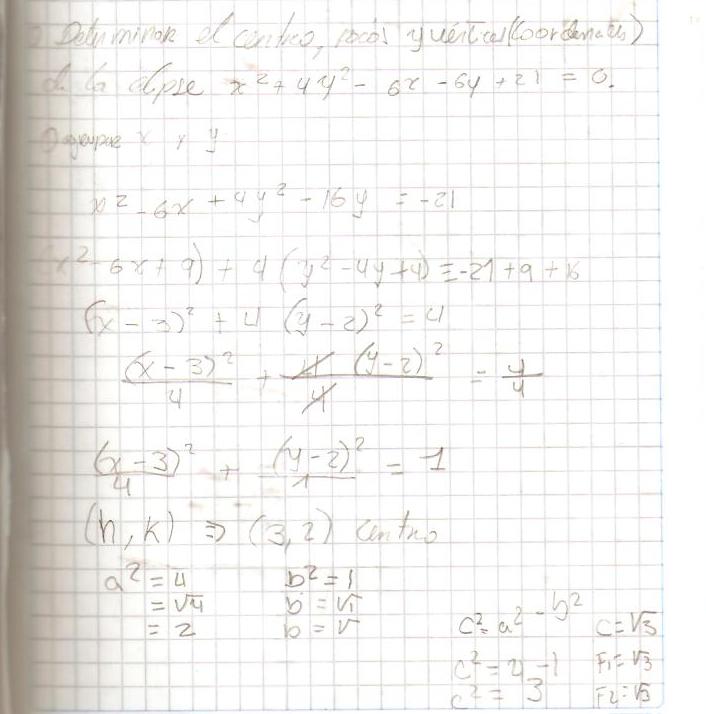 Determinar el centro, focos y vértices (coordenadas)
de la elipse x² + 4y² - 6x - 6y + 21 = 0.
agrupar x y y
x² - 6x + 4y² - 16y = -21
(x² - 6x + 9) + 4 (y² - 4y + 4) = -21 + 9 + 16
(x - 3)² + 4 (y - 2)² = 4
(x - 3)²/4 + 4 (y - 2)²/4 = 4/4
(x - 3)²/4 + (y - 2)²/1 = 1
(h, k) ⇒ (3, 2) centro
a² = 4 b² = 1
= √4 b = √1
= 2 b = √
c² = a² - b² C = √3
c² = 4 - 1 F1 = √3
c² = 3 F2 = √3